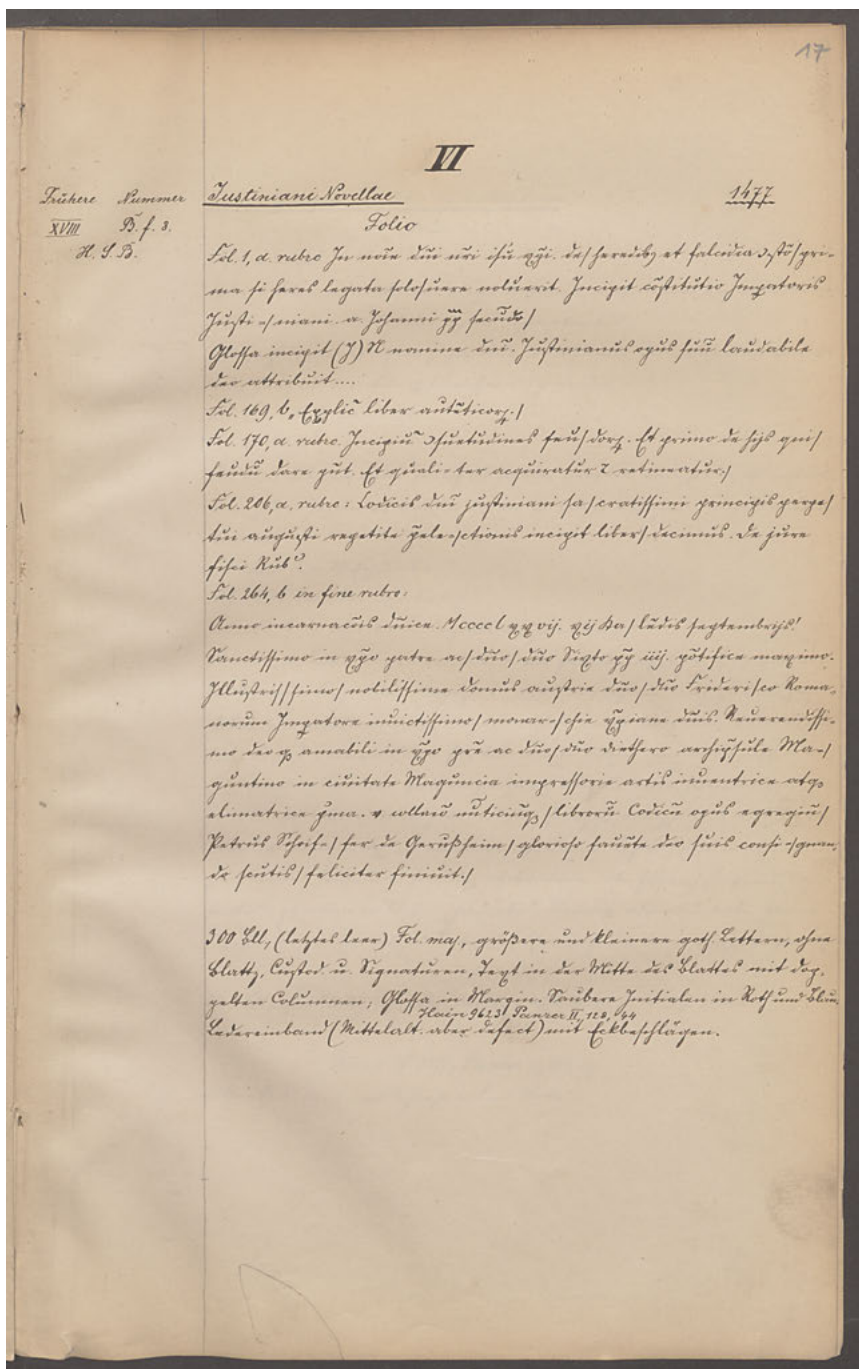 17
VI
Frühere Nummer
XVIII B. f. 3.
H. S. B.
Justiniani Novellae 1477
Folio
Fol. 1, a. rubro In noīe dni nri ihū xpi. de/ heredibꝫ et falcidia ↄstō/ pri-
ma si heres legata soluere noluerit. Incipit cōstitutio Impatoris
Justi-/niani. a. Johanni pp secūdo/
Glossa incipit (J) N nomine dnī. Justinianus opus suū laudabile
deo attribuit....
Fol. 169, b, Explic̄ liber autēticorꝝ./
Fol. 170, a. rubro. Incipiūt ↄsuetudines feu/dorꝝ. Et primo de hijs qui/
feudū dare pūt. Et quali-ter acquiratur ⁊ retineatur./
Fol. 206, a. rubro: Codicis dnī justiniani sa/cratissimi principis perpe/
tui augusti repetite p̄lele-/ctionis incipit liber/ decimus. De jure
fisci Rubᶜ.
Fol. 264, b in fine rubro:
Anno incarnacōis dnice. Mcccclxxvij. xij ka/lēdis septembrijs!
Sanctissimo in xpo patre ac/ dno/ dno Sixto pp iiij. pōtifice maximo.
Illustris/simo/ nobilissime domus austrie dno/ dno Friderico Roma-
norum Impatore inuictissimo/ monar-/chie xpiane dnis. Reuerendissi-
mo deo qꝫ amabili in xpo prē ac dno/ dno diethero archip̄sule Ma-/
guntino in ciuitate Maguncia impressorie artis inuentrice atqꝫ
elimatrice pma. v collacō nūticiūqꝫ/ librorū Codicū opus egregiū/
Petrus Schoif-/fer de Gerußheim/ glorioso fauēte deo suis consi-/gnan-
do scutis/ feliciter finiuit./
300 Bll, (letztes leer) Fol. maj., größere und kleinere goth. Lettern, ohne
Blattz, Custod. u. Signaturen, Text in der Mitte des Blattes mit dop-
pelten Columnen; Glossa in Margin. Saubere Initialen in Roth und Blau.
Hain 9623! Panzer II, 128, 44
Ledereinband (Mittelalt. aber defect) mit Eckbeschlägen.